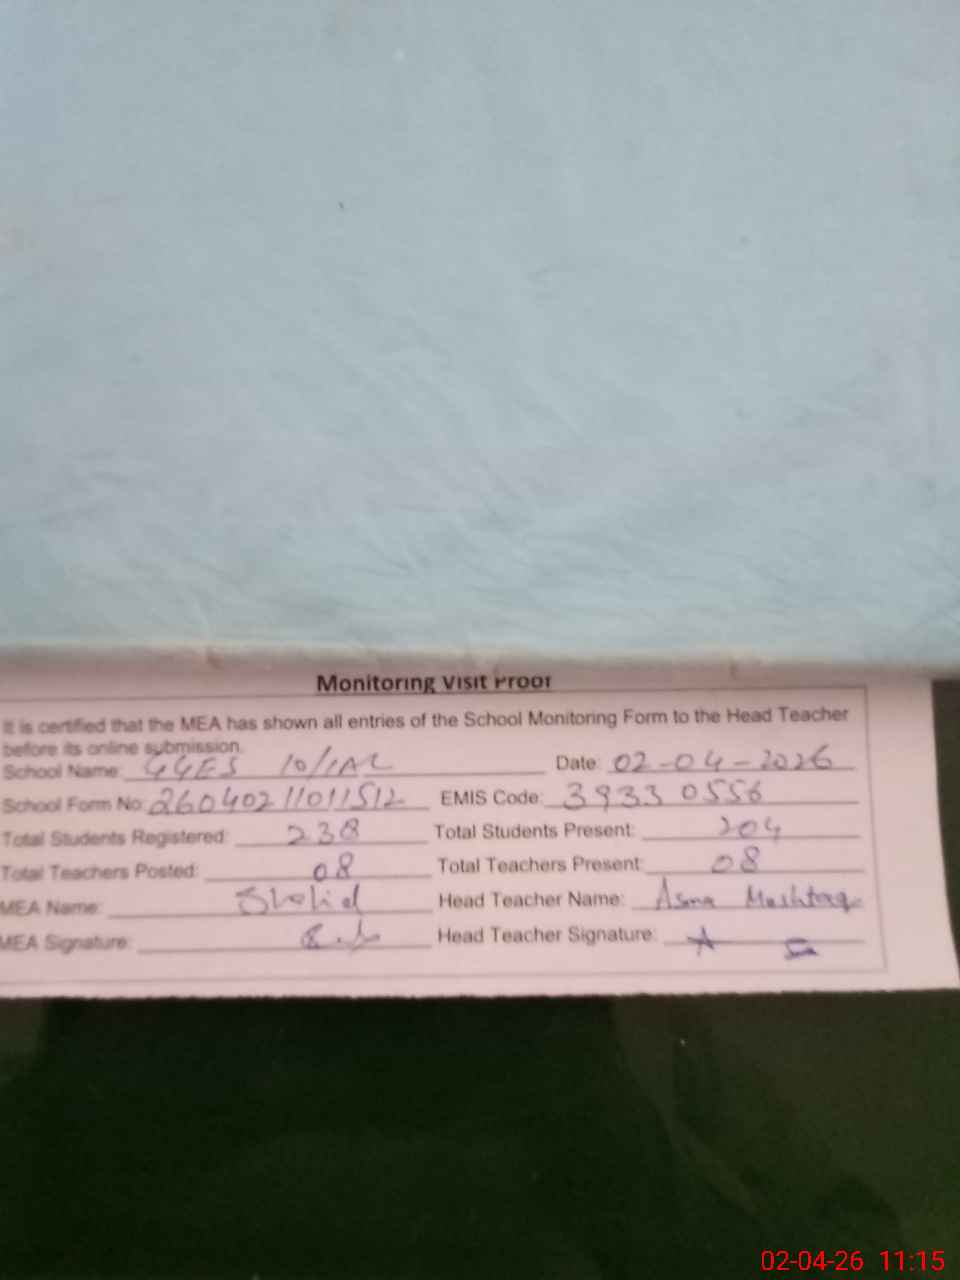 Monitoring Visit Proof
It is certified that the MEA has shown all entries of the School Monitoring Form to the Head Teacher
before its online submission.
School Name: GGES 10/1AL Date: 02-04-2026
School Form No: 26040211011512 EMIS Code: 39330556
Total Students Registered: 238 Total Students Present: 204
Total Teachers Posted: 08 Total Teachers Present: 08
MEA Name: Shahid Head Teacher Name: Asma Mushtaq
MEA Signature: Head Teacher Signature:
02-04-26 11:15